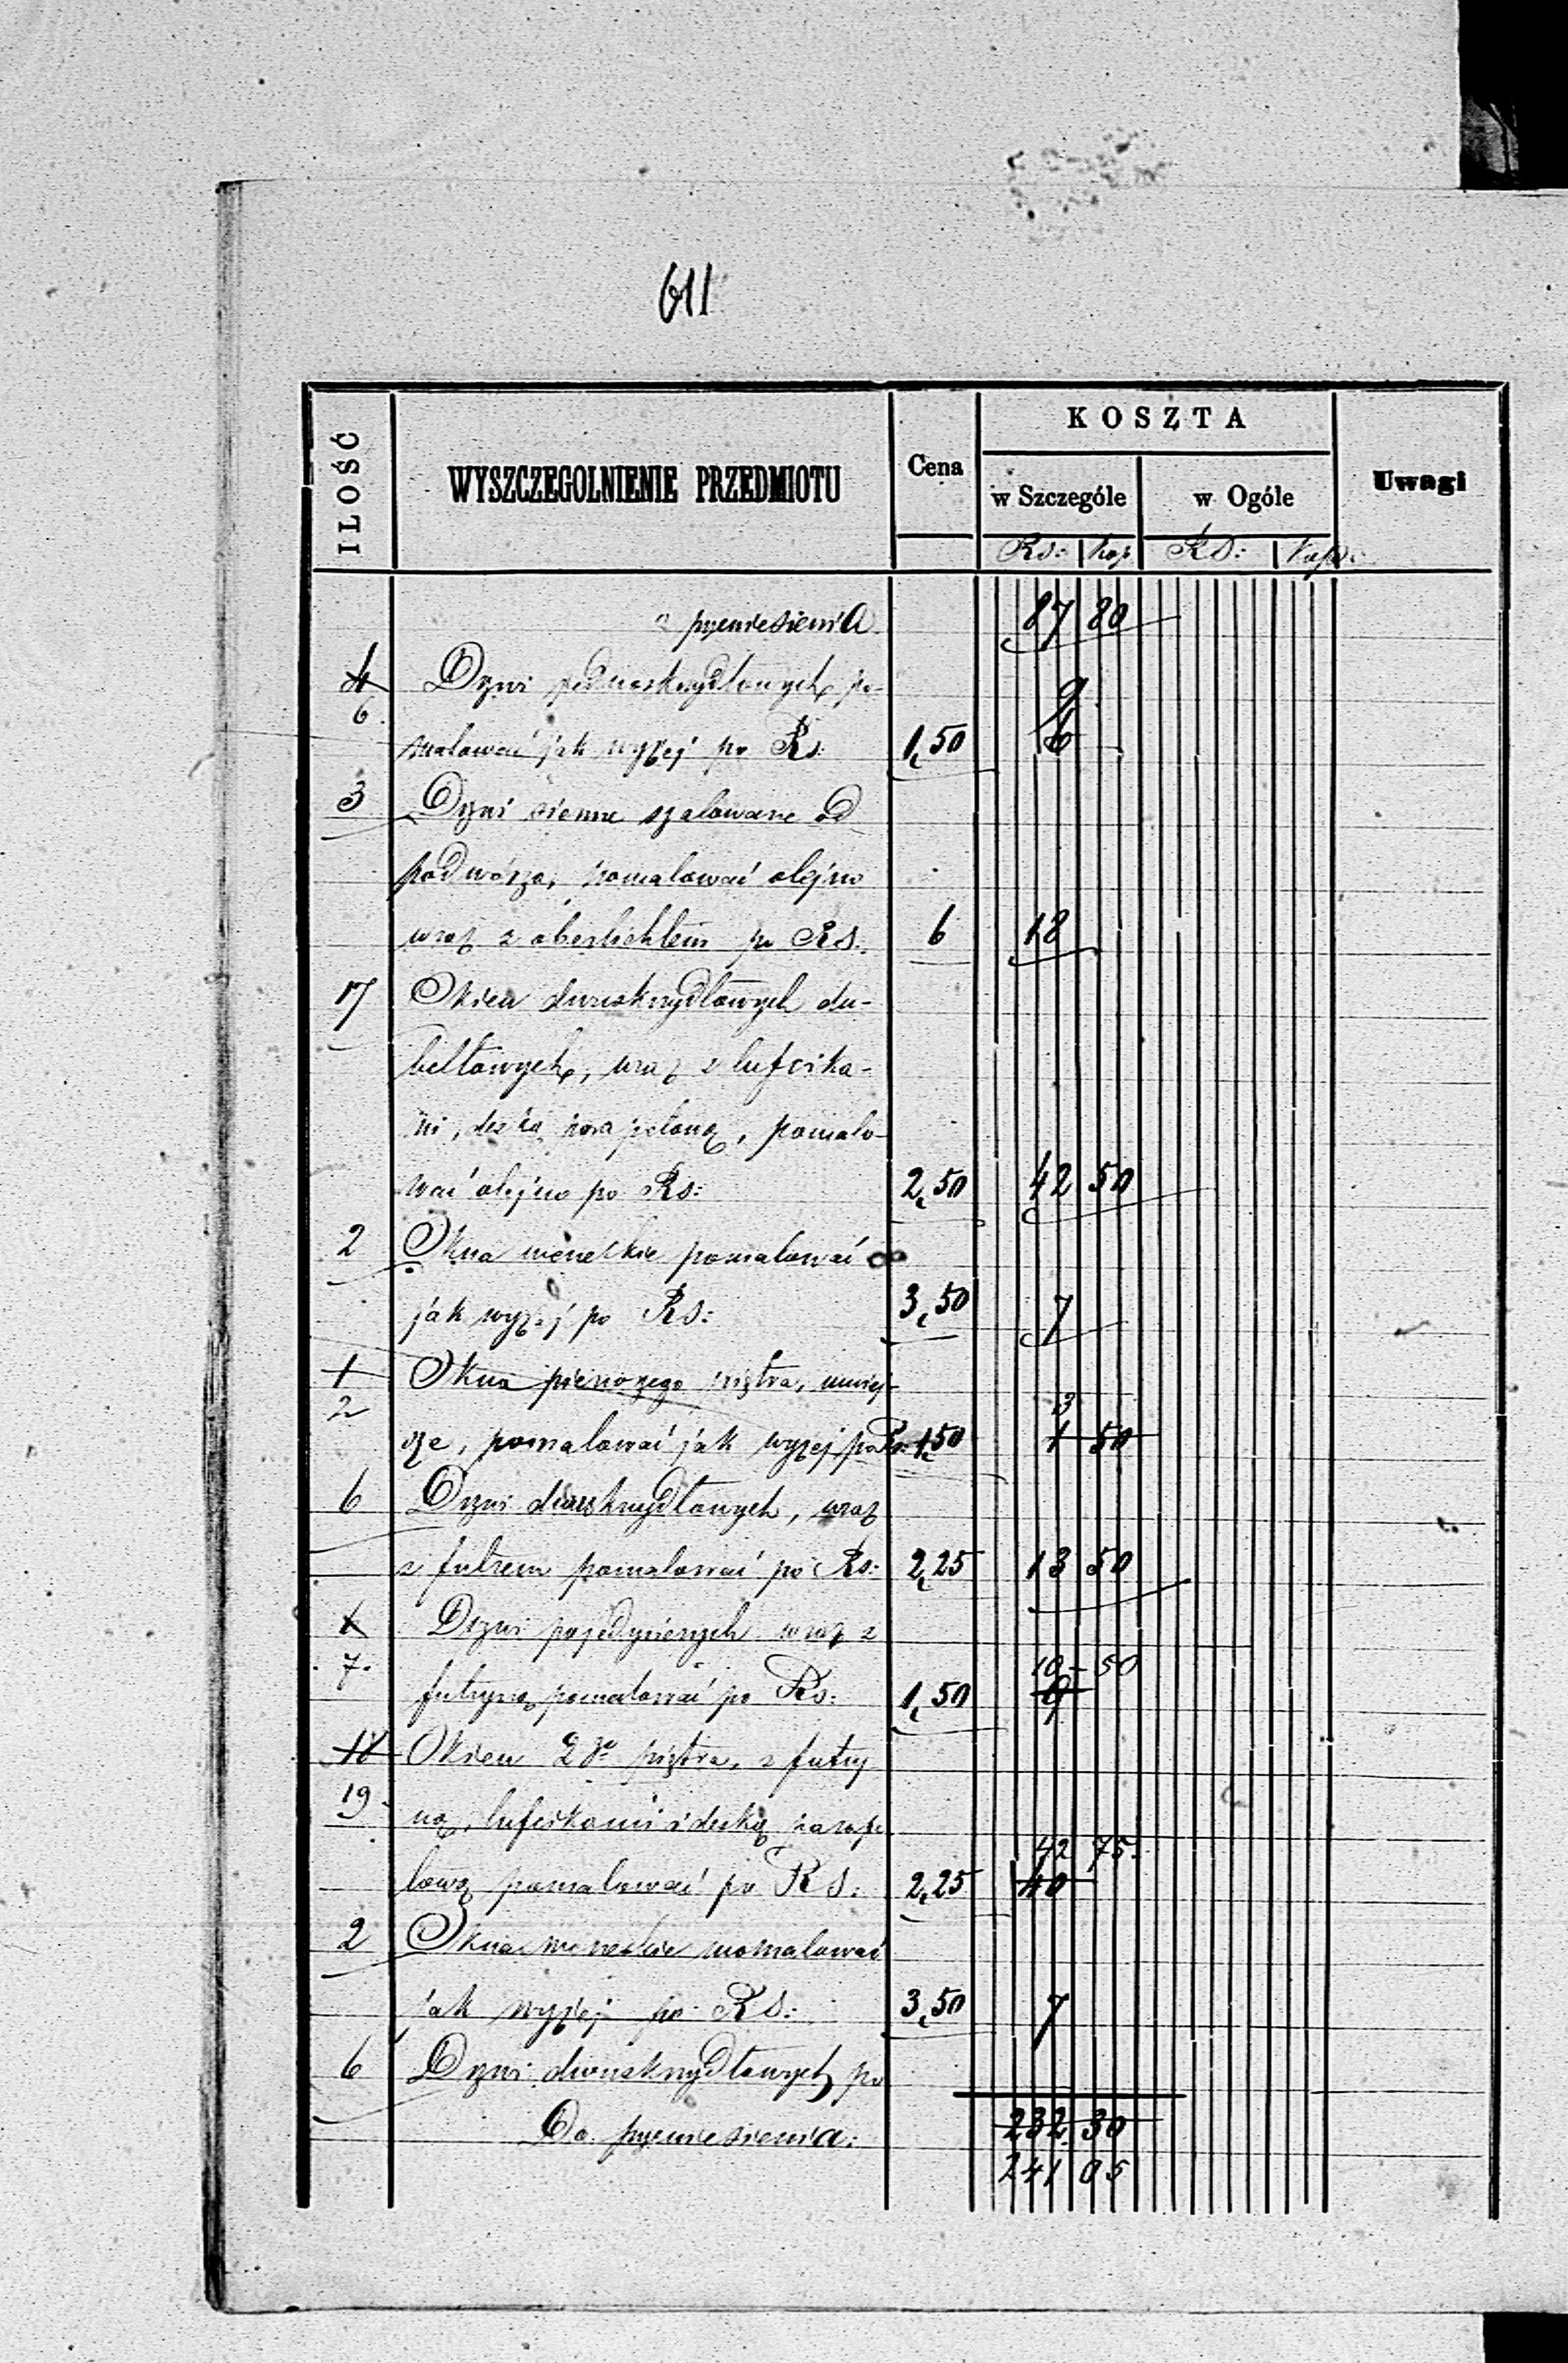 611
ILOŚĆ WYSZCZEGOLNIENIE PRZEDMIOTU Cena KOSZTA Uwagi
w Szczególe w Ogóle
Rs: kop Rs: Kop:
z przeniesienia 87 80
4 Drzwi jednoskrzydłowych po- 9
6
malować jak wyżej po Rs 1,50 6
3 Drzwi sienne szalowane od
podwórza, pomalować olejno
wraz z oberlichtem po Rs. 6 18
17 Okien dwuskrzydłowych du-
beltowych, wraz z lufcika-
mi, deską, pomalo-
wać olejno po Rs: 2,50 42 50
2 Okna weneckie pomalować
jak wyżej po Rs: 3,50 7
1 Okna pierwszego piętra, mniej-
2 3
sze, pomalować jak wyżej po Rs: 1,50 1 50
6 Drzwi dwuskrzydłowych, wraz
z futrem pomalować po Rs: 2,25 13 50
6 Drzwi pojedyńczych wraz z
7 10 - 50
futryną pomalować po Rs: 1,50 9
18 Okien 2go piętra, z futry
19 ną, lufcikami i deską
42 75
pomalować po Rs: 2,25 40
2 Okna weneckie pomalować
jak wyżej po Rs: 3,50 7
6 Drzwi dwuskrzydłowych po
Do przeniesienia: 232 30
241 05